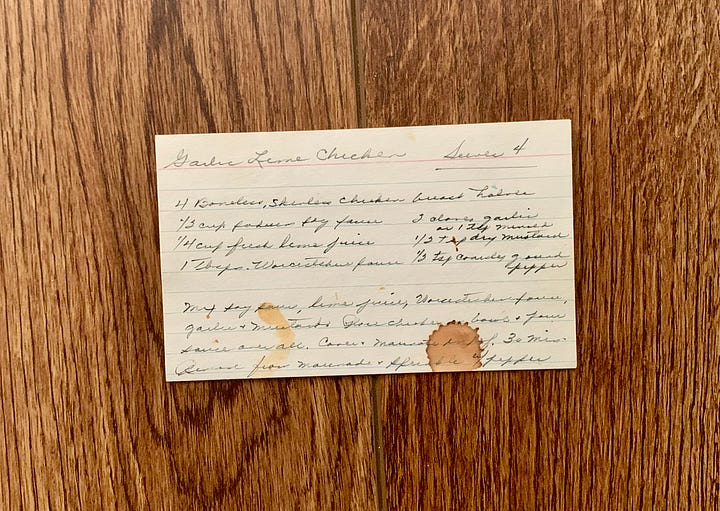 Garlic Lime Chicken Serves 4
4 Boneless, Skinless Chicken breast halves
1/3 cup soy sauce 2 cloves garlic
1/4 cup fresh lime juice or 1 tsp minced
1 Tbsp. Worcestshire sauce 1/2 tsp dry mustard
1/2 tsp coarsely ground
pepper
Mix soy sauce, lime juice, Worcestshire sauce,
garlic + Mustard. Place chicken in bowl + pour
sauce over all. Cover + Marinate 30 Min.
Remove from Marinade + Sprinkle pepper